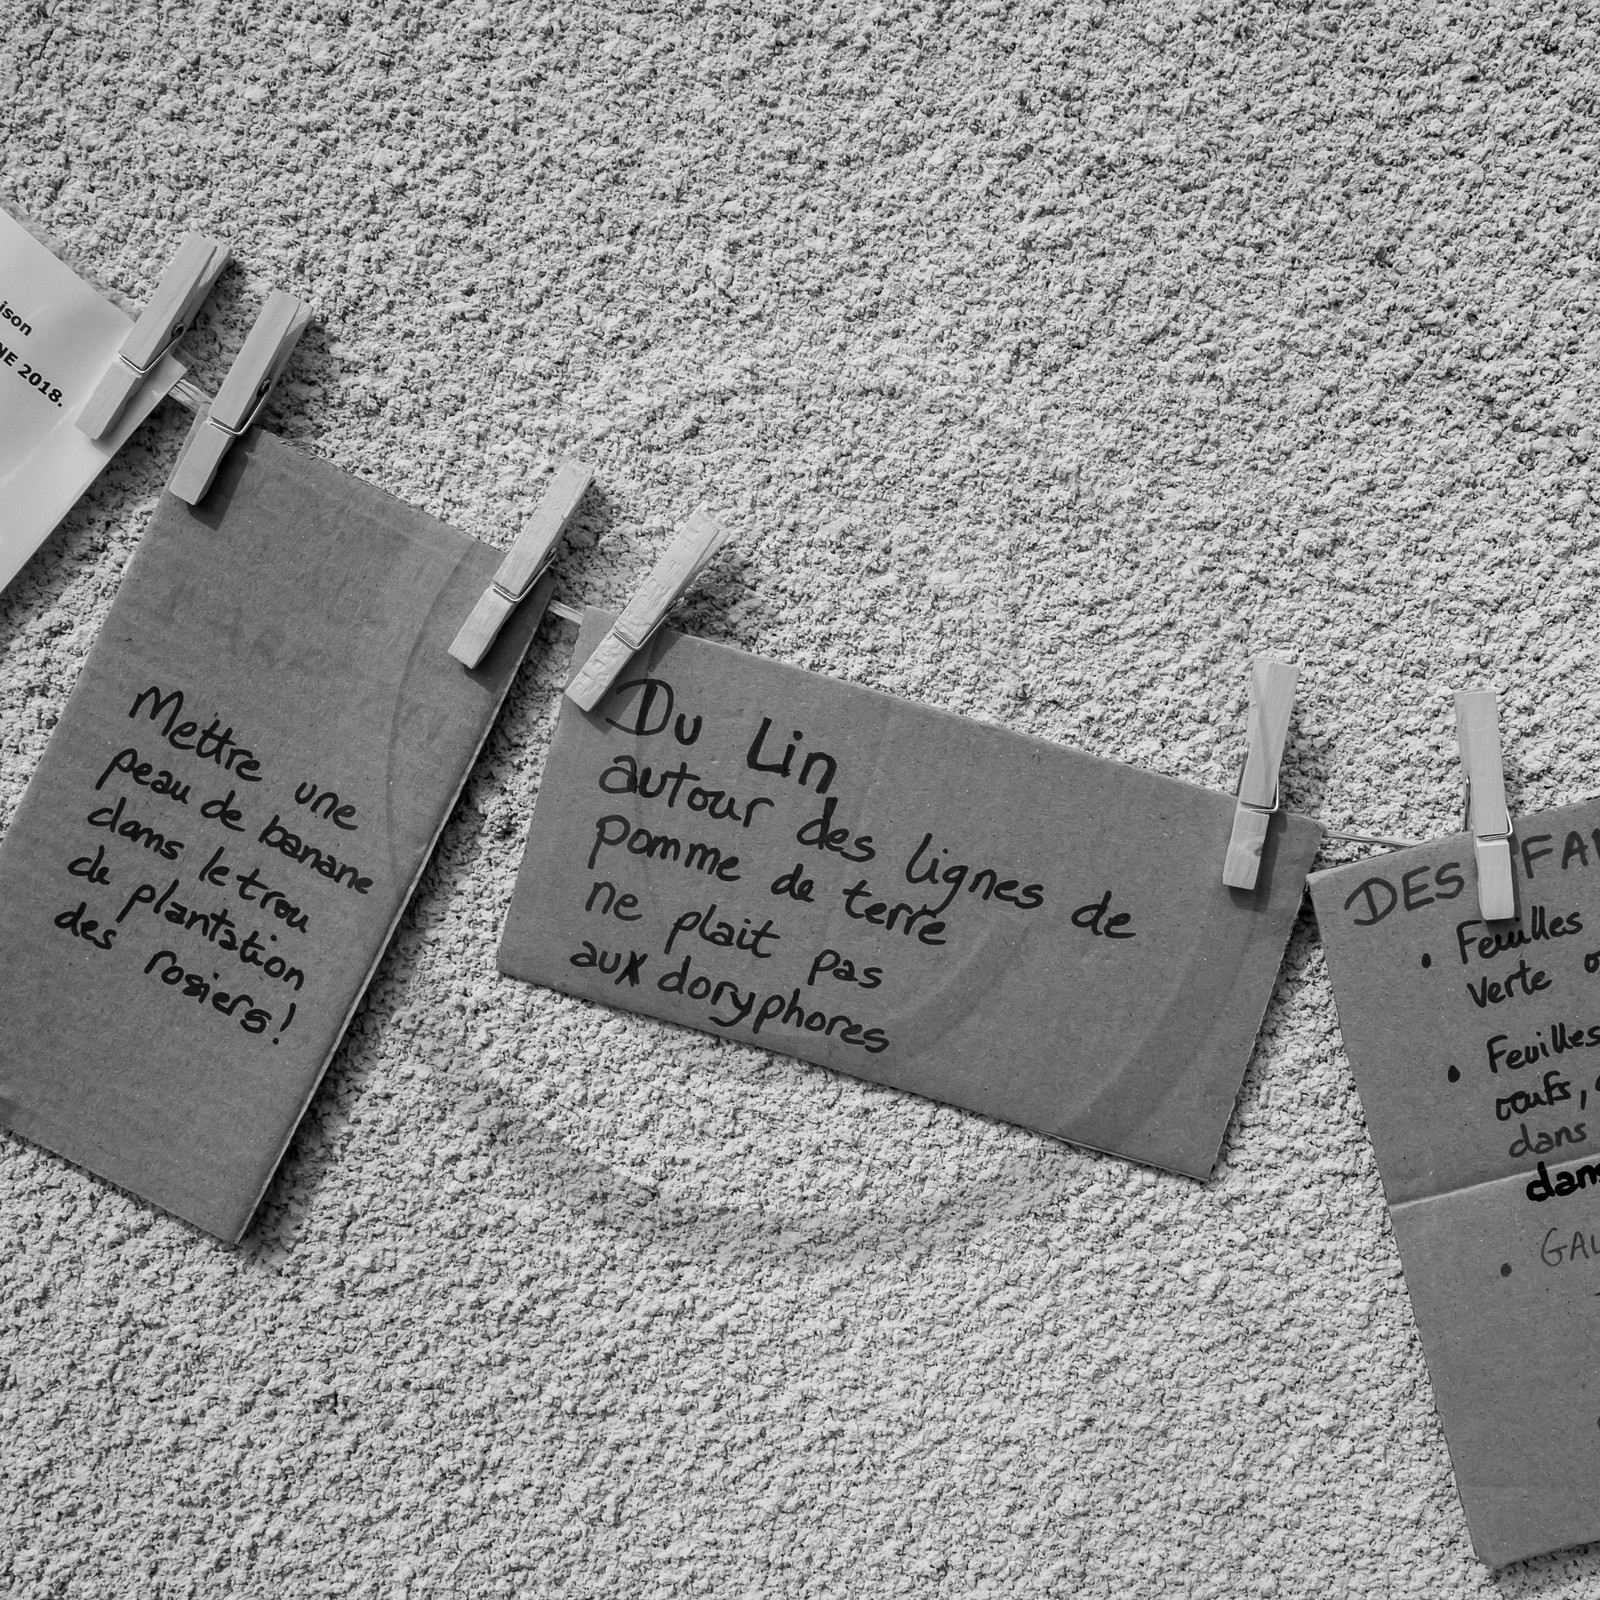 2018.
Mettre une
peau de banane
dans le trou
de plantation
des rosiers!
Du Lin
autour des lignes de
pomme de terre
ne plait pas
aux doryphores
DES
Feuilles
verte
Feuilles
oeufs,
dans
dans